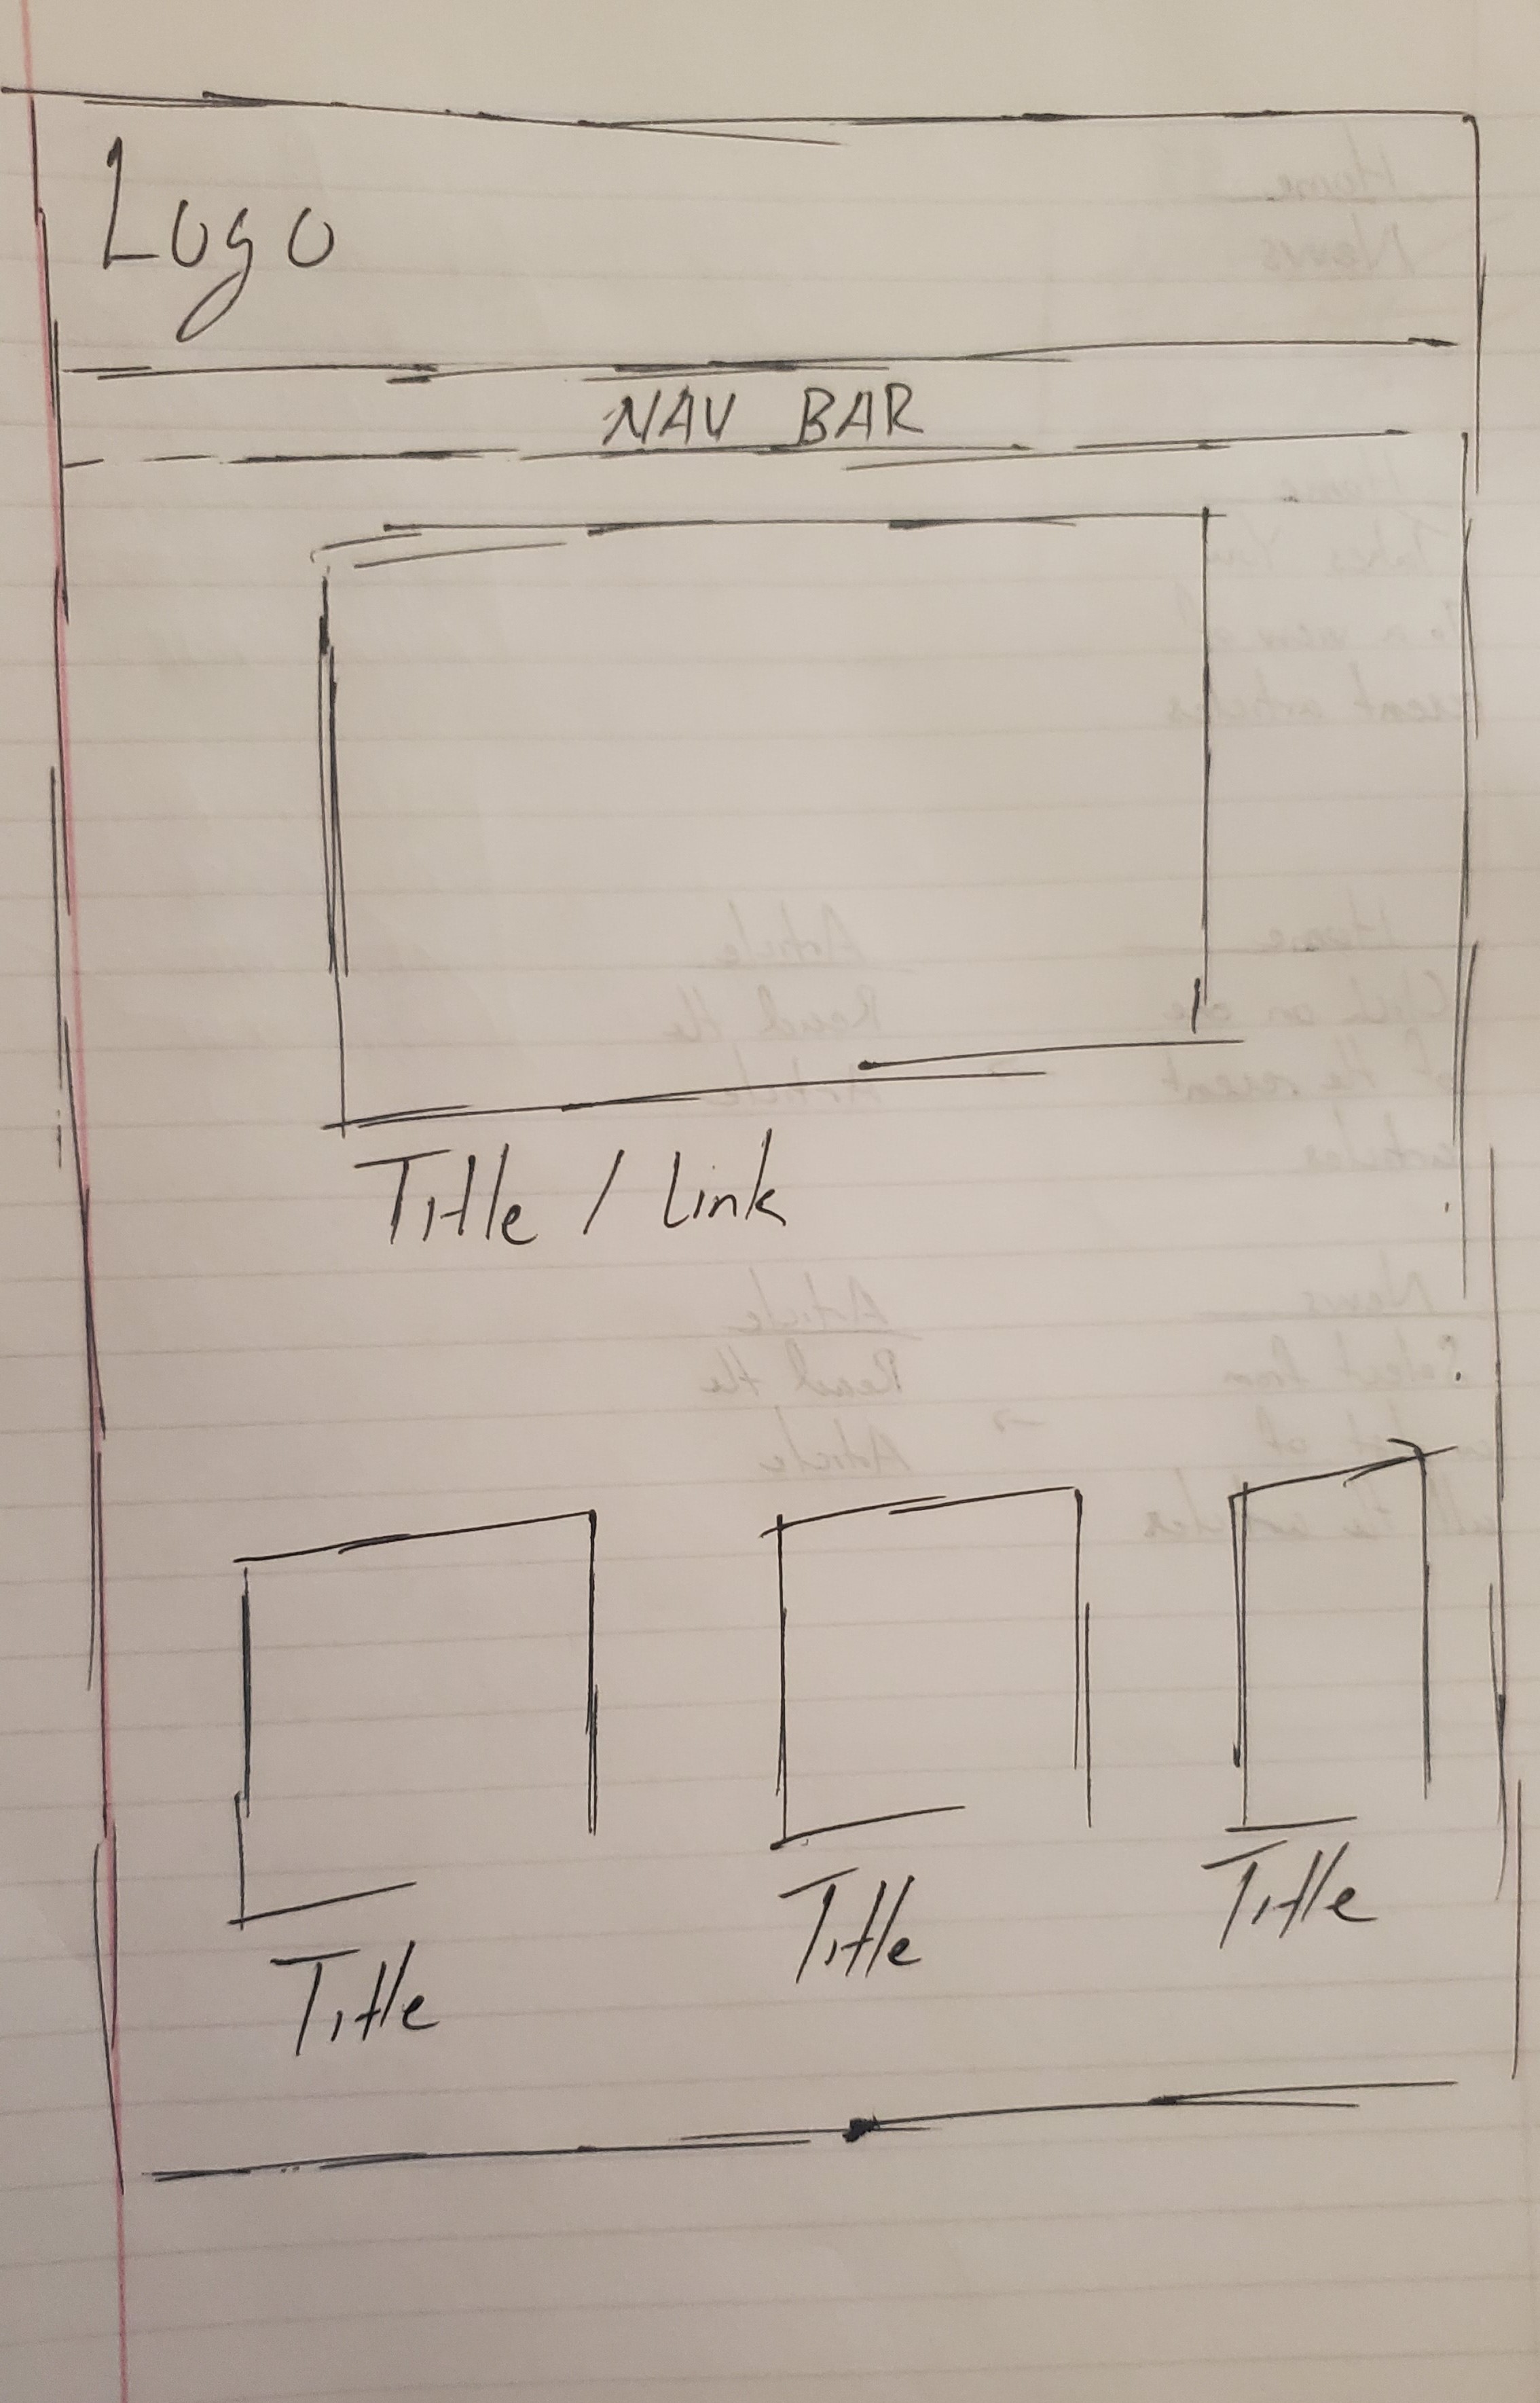 Logo
NAV BAR
Title / Link
Title
Title
Title